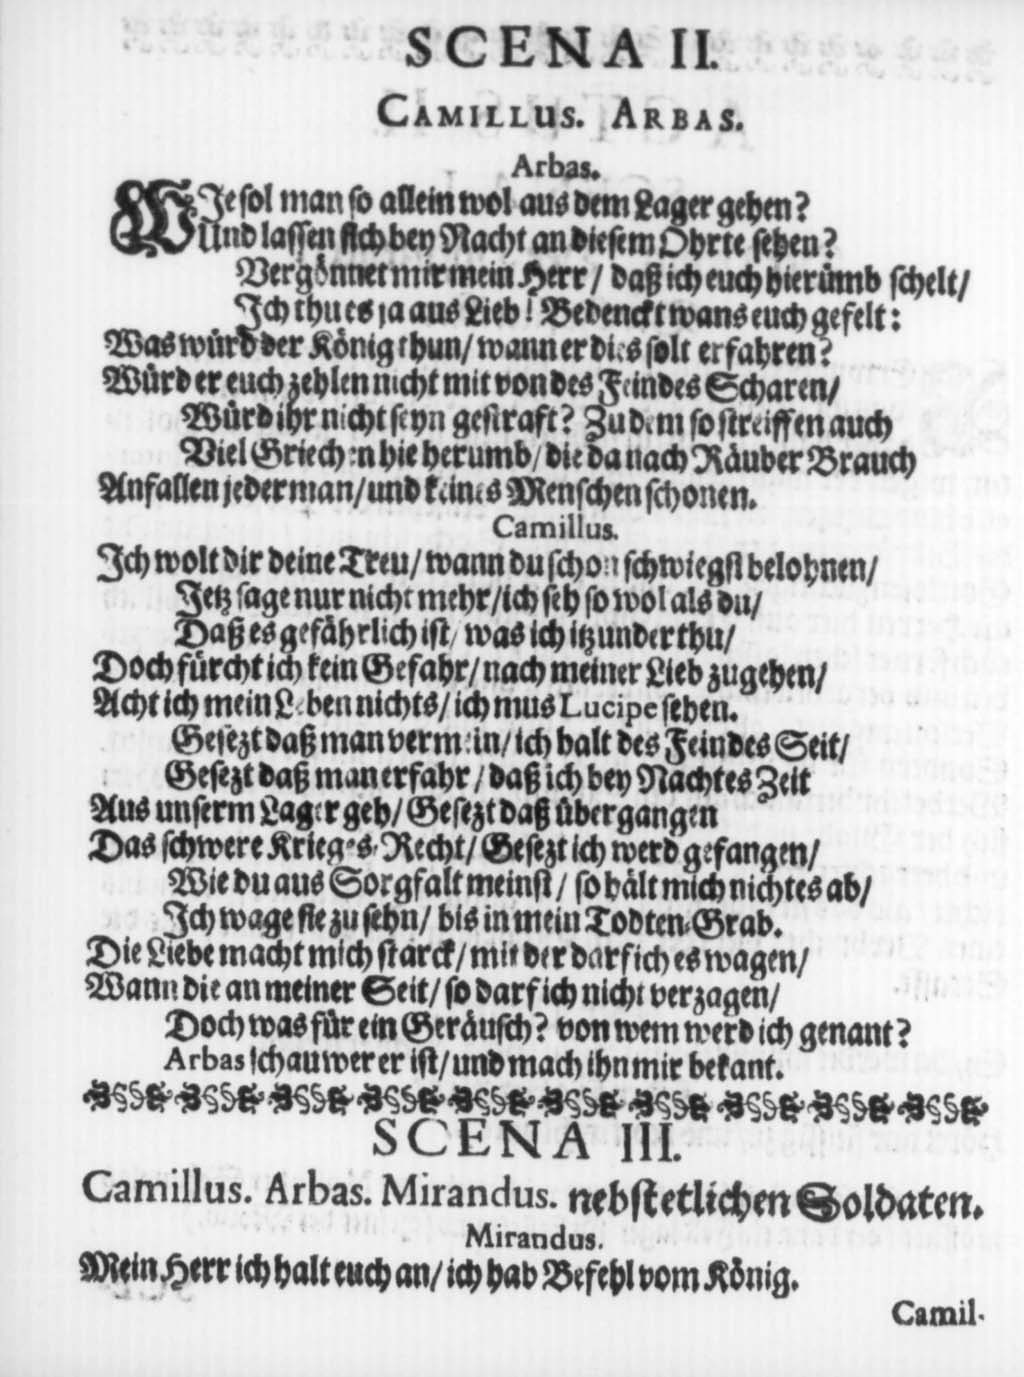 SCENA II.
CAMILLUS. ARBAS.
Arbas.
WJe sol man so allein wol aus dem Lager gehen?
Und lassen sich bey Nacht an diesem Ohrte sehen?
Vergönnet mir mein Herr / daß ich euch hierümb schelt/
Jch thu es ja aus Lieb! Bedenckt wans euch gefelt:
Was würd der König thun/ wann er dies solt erfahren?
Würd er euch zehlen nicht mit von des Feindes Scharen/
Würd ihr nicht seyn gestraft? Zu dem so streiffen auch
Viel Griechen hie herumb/ die da nach Räuber Brauch
Anfallen jederman/ und keines Menschen schonen.
Camillus.
Jch wolt dir deine Treu/ wann du schon schwiegst belohnen/
Jetz sage nur nicht mehr/ ich seh so wol als du/
Daß es gefährlich ist/ was ich itzunder thu/
Doch fürcht ich kein Gefahr/ nach meiner Lieb zugehen/
Acht ich mein Leben nichts/ ich mus Lucipe sehen.
Gesezt daß man vermein/ ich halt des Feindes Seit/
Gesezt daß man erfahr / daß ich bey Nachtes Zeit
Aus unserm Lager geh/ Gesezt daß übergangen
Das schwere Krieges-Recht/ Gesezt ich werd gefangen/
Wie du aus Sorgfalt meinst/ so hält mich nichtes ab/
Jch wage sie zu sehn/ bis in mein Todten-Grab.
Die Liebe macht mich starck/ mit der darf ich es wagen/
Wann die an meiner Seit/ so darf ich nicht verzagen/
Doch was für ein Geräusch? von wem werd ich genant?
Arbas schau wer er ist/ und mach ihn mir bekant.
SCENA III.
Camillus. Arbas. Mirandus. nebst etlichen Soldaten.
Mirandus.
Mein Herr ich halt euch an/ ich hab Befehl vom König.
Camil-